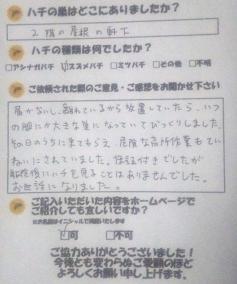 ハチの巣はどこにありましたか?
2階の屋根の軒下
ハチの種類は何でしたか?
□アシナガバチ ☑スズメバチ □ミツバチ □その他 □不明
ご依頼された際のご意見・ご感想をお聞かせ下さい
届かないし、離れているから放置していたら、いつ
の間にか大きな巣になっていてびっくりしました。
即日のうちに来てもらえ、危険な高所作業もてい
ねいにされていました。保証付きでしたが
駆除後にハチを見ることはありませんでした。
お世話になりました。
ご記入いただいた内容をホームページで
ご紹介しても宜しいですか?
※お名前はイニシャルで掲載いたします
☑可 □不可
ご協力ありがとうございました!
今後とも変わらぬご愛顧のほど
よろしくお願い申し上げます。